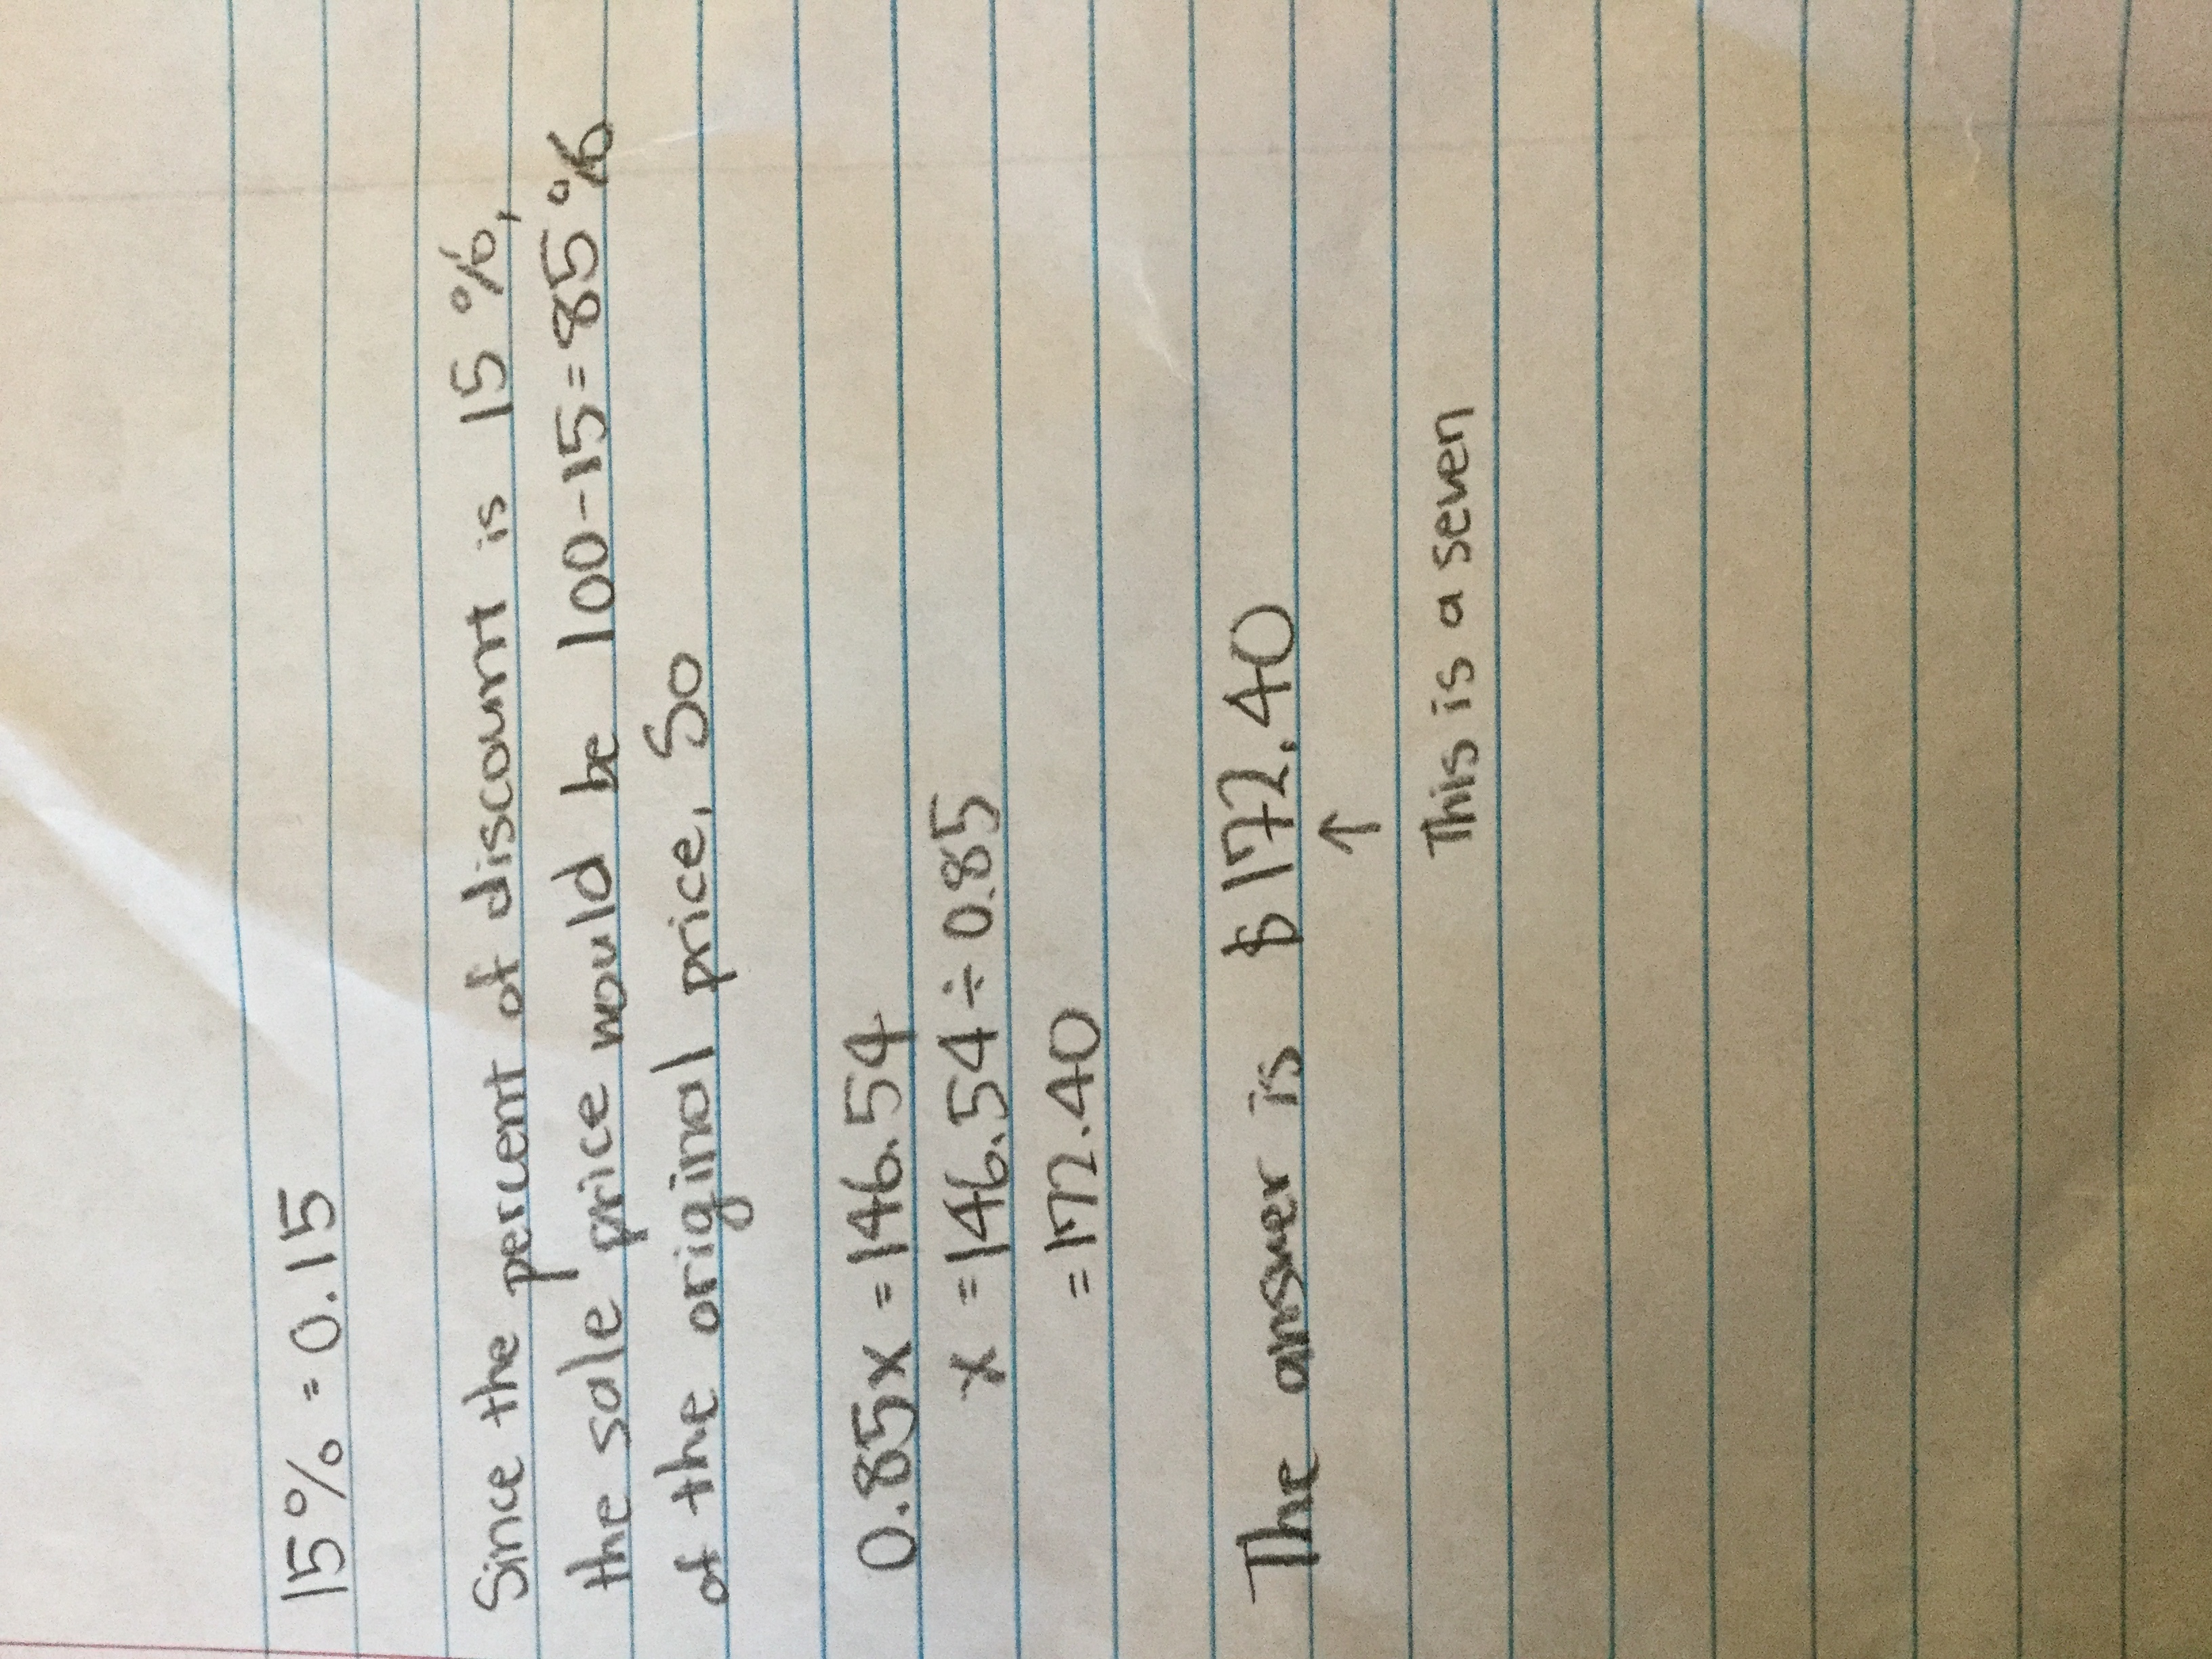 15% = 0.15
Since the percent of discount is 15%,
the sale price would be 100-15=85%
of the original price. So
0.85x = 146.54
x = 146.54 ÷ 0.85
= 172.40
The answer is $172.40
↑
This is a seven